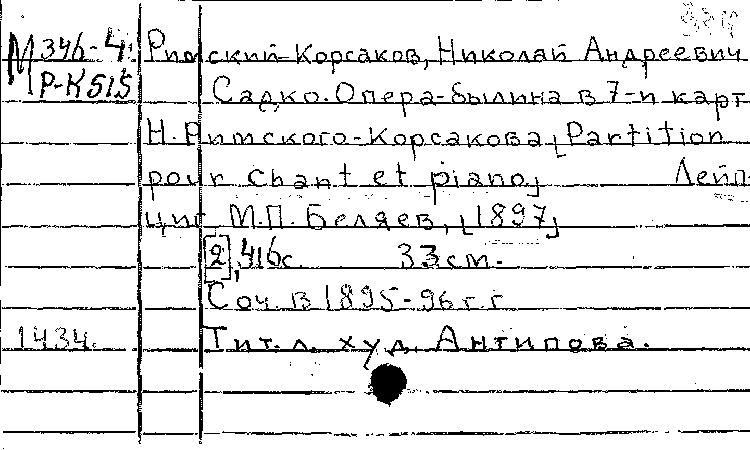 М 346-4. Римский-Корсаков, Николай Андреевич
Р-К515 Садко. Опера-былина в 7-и карт
Н. Римского-Корсакова [Partition
pour chant et piano] Лейп-
циг М.П. Беляев, [1897]
[2], 416 с. 33 см.
Соч. в 1895-96 г.г
1434. Тит. л. худ. Антипова.